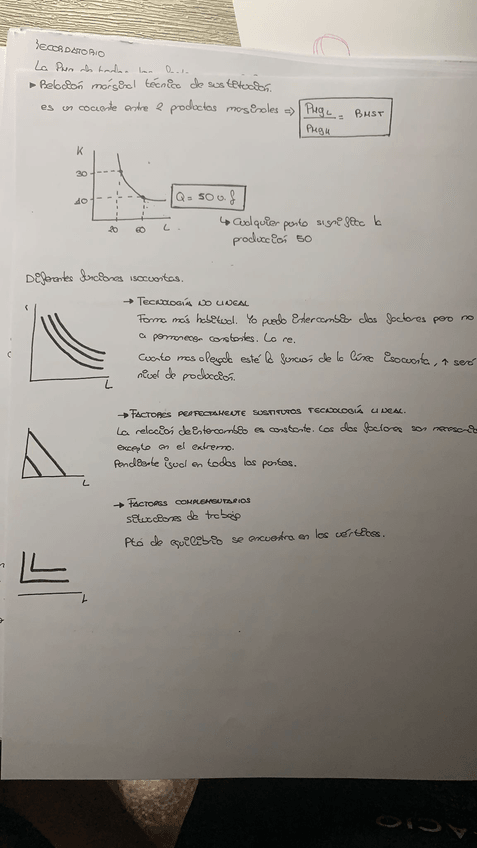 RECORDATORIO
La
▸ Relación marginal técnica de sustitución.
es un cociente entre 2 productos marginales ⇒ PMgL / PMgK = RMST
K
30
40
20 60 L
Q = 50 u.f
↳ Cualquier punto significa la
producción 50
Diferentes funciones isocuantas.
→ TECNOLOGÍA NO LINEAL
Forma más habitual. Yo puedo intercambiar dos factores pero no
a permanecer constantes. La re.
Cuanto mas alejada esté la función de la línea isocuanta, ↑ será
nivel de producción.
L
→ FACTORES PERFECTAMENTE SUSTITUTOS TECNOLOGÍA LINEAL.
La relación de intercambio es constante. Los dos factores son necesari
excepto en el extremo.
Pendiente igual en todos los puntos.
L
→ FACTORES COMPLEMENTARIOS
situaciones de trabajo
Pto de equilibrio se encuentra en los vértices.
L
ACIO